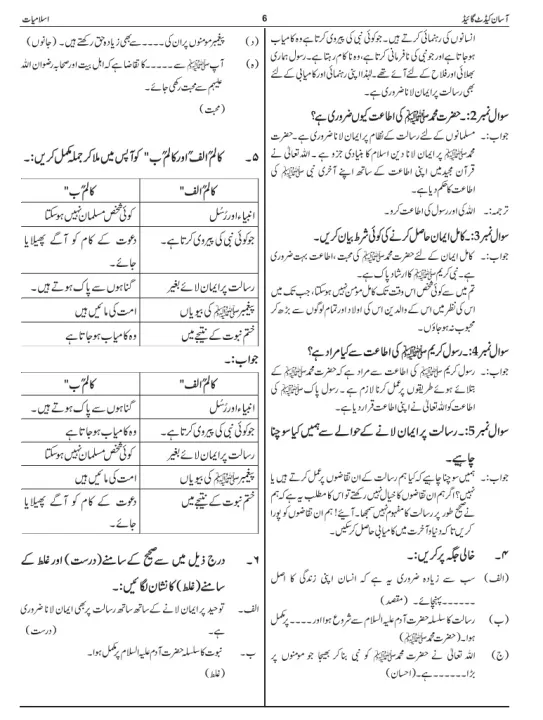 آسان کیڈٹ گائیڈ
6
اسلامیات
انسانوں کی رہنمائی کرتے ہیں۔ جو کوئی نبی کی پیروی کرتا ہے وہ کامیاب
ہو جاتا ہے اور جو نبی کی نافرمانی کرتا ہے، وہ ناکام رہتا ہے۔ رسول ہماری
بھلائی اور فلاح کے لئے آئے تھے۔ لہٰذا اپنی رہنمائی اور کامیابی کے لئے
بھی رسالت پر ایمان لانا ضروری ہے۔
سوال نمبر2:۔ حضرت محمد ﷺ کی اطاعت کیوں ضروری ہے؟
جواب:۔ مسلمانوں کے لئے رسالت کے نظام پر ایمان لانا ضروری ہے۔ حضرت
محمد ﷺ پر ایمان لانا دین اسلام کا بنیادی جزو ہے۔ اللہ تعالیٰ نے
قرآن مجید میں اپنی اطاعت کے ساتھ اپنے آخری نبی ﷺ کی
اطاعت کا حکم دیا ہے۔
ترجمہ:۔ اللہ کی اور رسول کی اطاعت کرو۔
سوال نمبر3:۔ کامل ایمان حاصل کرنے کی کوئی شرط بیان کریں۔
جواب:۔ کامل ایمان کے لئے حضرت محمد ﷺ کی محبت، اطاعت بہت ضروری
ہے۔ نبی کریم ﷺ کا ارشاد پاک ہے۔
تم میں سے کوئی شخص اس وقت تک کامل مومن نہیں ہو سکتا، جب تک میں
اس کی نظر میں اس کے والدین اس کی اولاد اور تمام لوگوں سے بڑھ کر
محبوب نہ ہو جاؤں۔
سوال نمبر4:۔ رسول کریم ﷺ کی اطاعت سے کیا مراد ہے؟
جواب:۔ رسول کریم ﷺ کی اطاعت سے مراد ہے کہ حضرت محمد ﷺ کے
بتلائے ہوئے طریقوں پر عمل کرنا لازم ہے۔ رسول پاک ﷺ کی
اطاعت کو اللہ تعالیٰ نے اپنی اطاعت قرار دیا ہے۔
سوال نمبر5:۔ رسالت پر ایمان لانے کے حوالے سے ہمیں کیا سوچنا
چاہیے۔
جواب:۔ ہمیں سوچنا چاہیے کہ کیا ہم رسالت کے ان تقاضوں پر عمل کرتے ہیں یا
نہیں؟ اگر ہم ان تقاضوں کا خیال نہیں رکھتے تو اس کا مطلب یہ ہے کہ ہم
نے صحیح طور پر رسالت کا مفہوم نہیں سمجھا۔ آیئے! ہم ان تقاضوں کو پورا
کریں تاکہ دنیا و آخرت میں کامیابی حاصل کر سکیں۔
۴۔ خالی جگہ پر کریں:۔
(الف) سب سے زیادہ ضروری یہ ہے کہ انسان اپنی زندگی کا اصل
۔۔۔۔۔۔ پہنچائے۔ (مقصد)
(ب) رسالت کا سلسلہ حضرت آدم علیہ السلام سے شروع ہوا اور ۔۔۔۔ پر مکمل
ہوا۔ (حضرت محمد ﷺ)
(ج) اللہ تعالیٰ نے حضرت محمد ﷺ کو نبی بنا کر بھیجا جو مومنوں پر
بڑا ۔۔۔۔۔۔ ہے۔ (احسان)
(د) پیغمبر مومنوں پر ان کی ۔۔۔۔ سے بھی زیادہ حق رکھتے ہیں۔ (جانوں)
(ہ) آپ ﷺ سے ۔۔۔۔۔ کا تقاضا ہے کہ اہل بیت اور صحابہ رضوان اللہ
علیہم سے محبت رکھی جائے۔
(محبت)
۵۔ کالم "الف" اور کالم "ب" کو آپس میں ملا کر جملہ مکمل کریں:۔
کالم "الف" کالم "ب"
انبیاء اور رُسل کوئی شخص مسلمان نہیں ہو سکتا
جو کوئی نبی کی پیروی کرتا ہے۔ دعوت کے کام کو آگے پھیلایا
جائے۔
رسالت پر ایمان لائے بغیر گناہوں سے پاک ہوتے ہیں۔
پیغمبر ﷺ کی بیویاں امت کی مائیں ہیں
ختم نبوت کے نتیجے میں وہ کامیاب ہو جاتا ہے
جواب:۔
کالم "الف" کالم "ب"
انبیاء اور رُسل گناہوں سے پاک ہوتے ہیں۔
جو کوئی نبی کی پیروی کرتا ہے۔ وہ کامیاب ہو جاتا ہے
رسالت پر ایمان لائے بغیر کوئی شخص مسلمان نہیں ہو سکتا
پیغمبر ﷺ کی بیویاں امت کی مائیں ہیں
ختم نبوت کے نتیجے میں دعوت کے کام کو آگے پھیلایا
جائے۔
۶۔ درج ذیل میں سے صحیح کے سامنے (درست) اور غلط کے
سامنے (غلط) کا نشان لگائیں:۔
الف۔ توحید پر ایمان لانے کے ساتھ ساتھ رسالت پر بھی ایمان لانا ضروری
ہے۔ (درست)
ب۔ نبوت کا سلسلہ حضرت آدم علیہ السلام پر مکمل ہوا۔
(غلط)